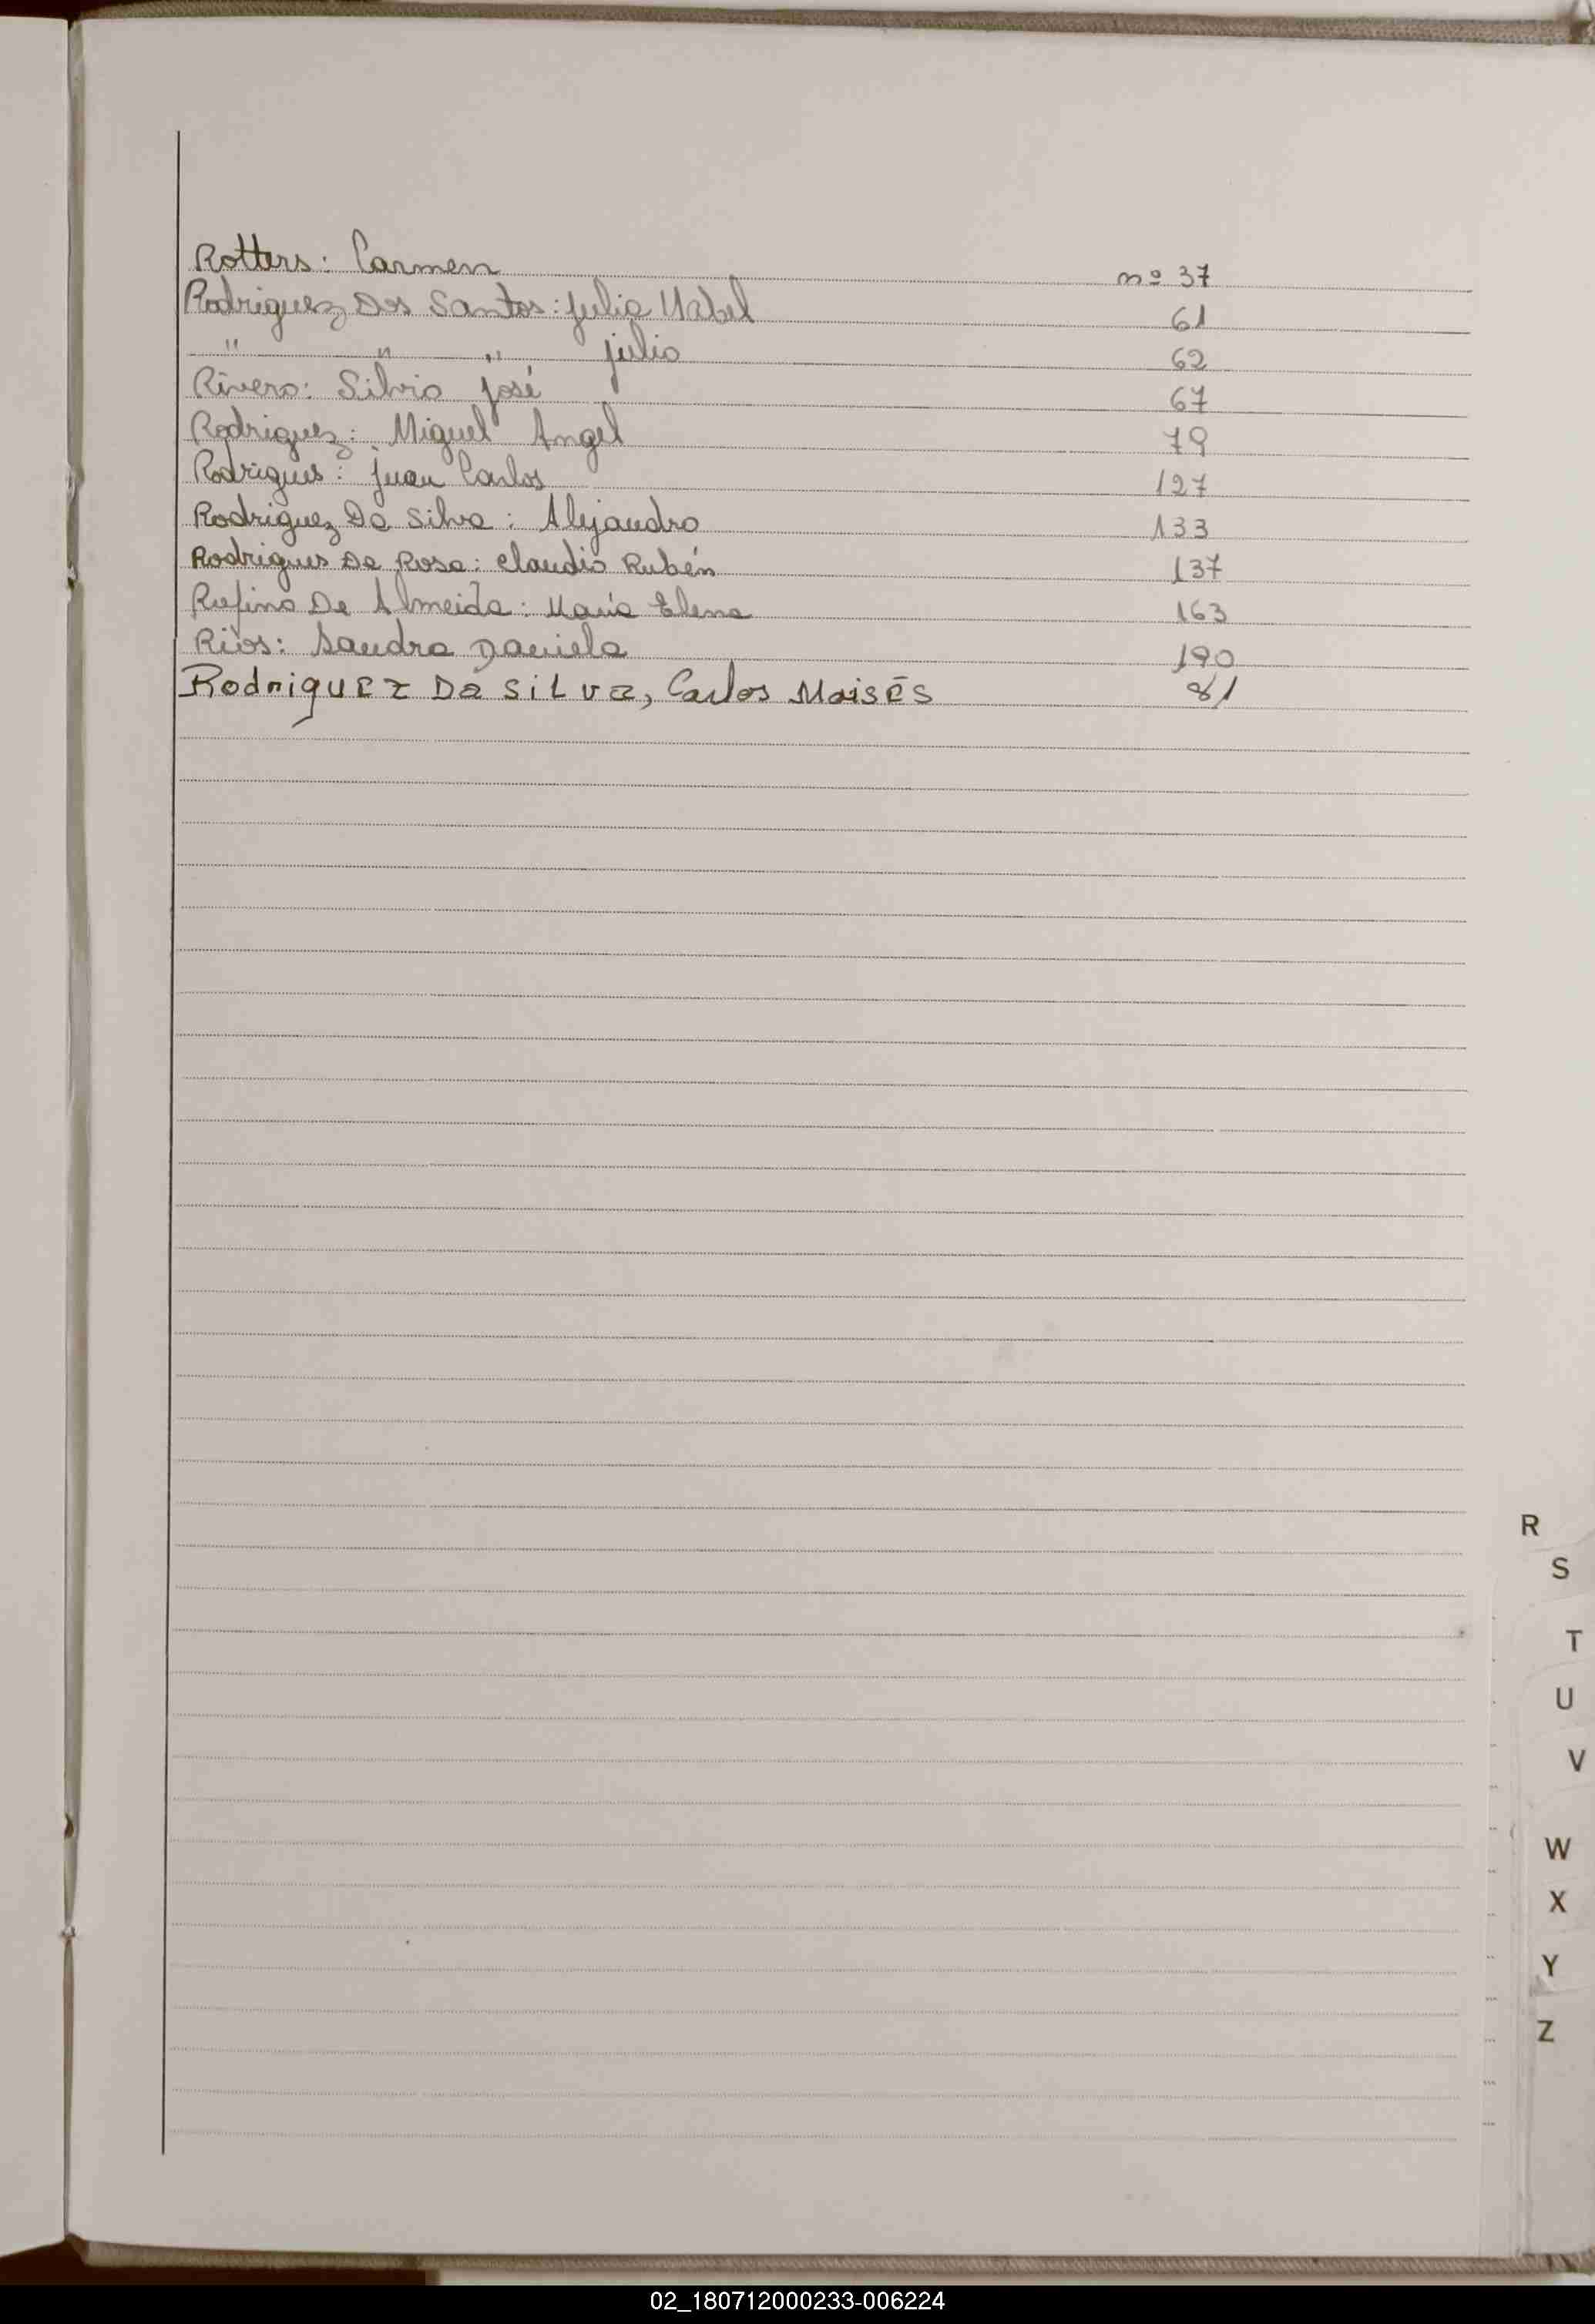 Rotters: Carmen nº 37
Rodriguez Dos Santos: Julia Mabel 61
" " " Julio 62
Rivero: Silvio José 67
Rodriguez: Miguel Angel 79
Rodrigues: Juan Carlos 127
Rodriguez Da Silva: Alejandro 133
Rodrigues Da Rosa: Claudio Rubén 137
Rufino De Almeida: María Elena 163
Rios: Sandra Daniela 190
Rodriguez Da Silva, Carlos Moisés 81
R
S
T
U
V
W
X
Y
Z
02_180712000233-006224